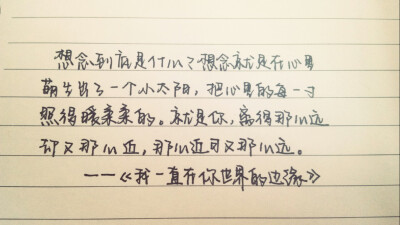 想念到底是什么？想念就是在心里
萌生出了一个小太阳，把心里的每一寸
照得暖亲亲的。就是你，离得那么远
却又那么近，那么近可又那么远。
——《我一直在你世界的边缘》